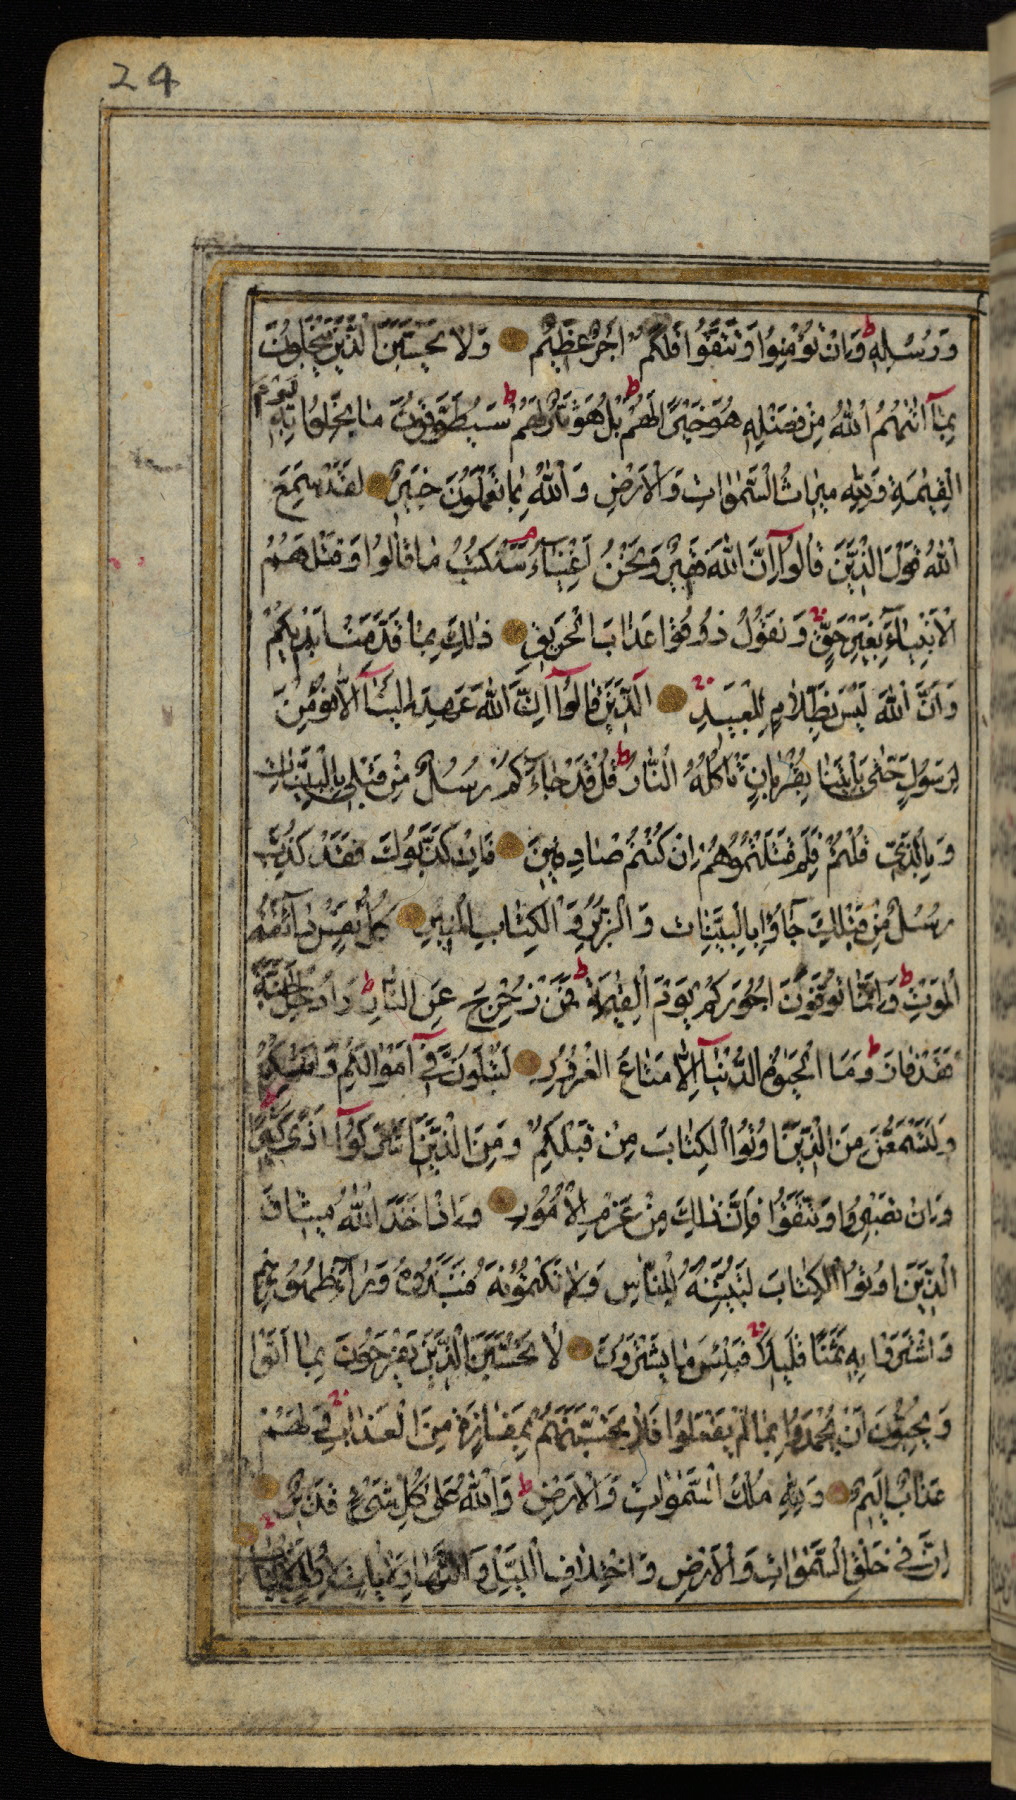 24
وَرُسُلِهٖ ط وَاِنْ تُؤْمِنُوا وَتَتَّقُوا فَلَكُمْ اَجْرٌ عَظِيمٌ وَلَا يَحْسَبَنَّ الَّذِينَ يَبْخَلُونَ
بِمَآ اٰتٰهُمُ اللّٰهُ مِنْ فَضْلِهٖ هُوَ خَيْرًا لَهُمْ ط بَلْ هُوَ شَرٌّ لَهُمْ ط سَيُطَوَّقُونَ مَا بَخِلُوا بِهٖ يَوْمَ
الْقِيٰمَةِ وَلِلّٰهِ مِيرَاثُ السَّمٰوَاتِ وَالْاَرْضِ وَاللّٰهُ بِمَا تَعْمَلُونَ خَبِيرٌ لَقَدْ سَمِعَ
اللّٰهُ قَوْلَ الَّذِينَ قَالُوآ اِنَّ اللّٰهَ فَقِيرٌ وَنَحْنُ اَغْنِيَآءُ سَنَكْتُبُ مَا قَالُوا وَقَتْلَهُمُ
الْاَنْبِيَآءَ بِغَيْرِ حَقٍّ وَنَقُولُ ذُوقُوا عَذَابَ الْحَرِيقِ ذٰلِكَ بِمَا قَدَّمَتْ اَيْدِيكُمْ
وَاَنَّ اللّٰهَ لَيْسَ بِظَلَّامٍ لِلْعَبِيدِ الَّذِينَ قَالُوآ اِنَّ اللّٰهَ عَهِدَ اِلَيْنَآ اَلَّا نُؤْمِنَ
لِرَسُولٍ حَتّٰى يَاْتِيَنَا بِقُرْبَانٍ تَاْكُلُهُ النَّارُ ط قُلْ قَدْ جَآءَكُمْ رُسُلٌ مِنْ قَبْلِي بِالْبَيِّنَاتِ
وَبِالَّذِي قُلْتُمْ فَلِمَ قَتَلْتُمُوهُمْ اِنْ كُنْتُمْ صَادِقِينَ فَاِنْ كَذَّبُوكَ فَقَدْ كُذِّبَ
رُسُلٌ مِنْ قَبْلِكَ جَآؤُا بِالْبَيِّنَاتِ وَالزُّبُرِ وَالْكِتَابِ الْمُنِيرِ كُلُّ نَفْسٍ ذَآئِقَةُ
الْمَوْتِ ط وَاِنَّمَا تُوَفَّوْنَ اُجُورَكُمْ يَوْمَ الْقِيٰمَةِ ط فَمَنْ زُحْزِحَ عَنِ النَّارِ وَاُدْخِلَ الْجَنَّةَ
فَقَدْ فَازَ ط وَمَا الْحَيٰوةُ الدُّنْيَآ اِلَّا مَتَاعُ الْغُرُورِ لَتُبْلَوُنَّ فِيٓ اَمْوَالِكُمْ وَاَنْفُسِكُمْ
وَلَتَسْمَعُنَّ مِنَ الَّذِينَ اُوتُوا الْكِتَابَ مِنْ قَبْلِكُمْ وَمِنَ الَّذِينَ اَشْرَكُوآ اَذًى كَثِيرًا
وَاِنْ تَصْبِرُوا وَتَتَّقُوا فَاِنَّ ذٰلِكَ مِنْ عَزْمِ الْاُمُورِ وَاِذْ اَخَذَ اللّٰهُ مِيثَاقَ
الَّذِينَ اُوتُوا الْكِتَابَ لَتُبَيِّنُنَّهُ لِلنَّاسِ وَلَا تَكْتُمُونَهُ فَنَبَذُوهُ وَرَآءَ ظُهُورِهِمْ
وَاشْتَرَوْا بِهٖ ثَمَنًا قَلِيلًا فَبِئْسَ مَا يَشْتَرُونَ لَا تَحْسَبَنَّ الَّذِينَ يَفْرَحُونَ بِمَا اَتَوْا
وَيُحِبُّونَ اَنْ يُحْمَدُوا بِمَا لَمْ يَفْعَلُوا فَلَا تَحْسَبَنَّهُمْ بِمَفَازَةٍ مِنَ الْعَذَابِ وَلَهُمْ
عَذَابٌ اَلِيمٌ وَلِلّٰهِ مُلْكُ السَّمٰوَاتِ وَالْاَرْضِ ط وَاللّٰهُ عَلٰى كُلِّ شَيْءٍ قَدِيرٌ
اِنَّ فِي خَلْقِ السَّمٰوَاتِ وَالْاَرْضِ وَاخْتِلَافِ الَّيْلِ وَالنَّهَارِ لَاٰيَاتٍ لِاُولِي الْاَلْبَابِ